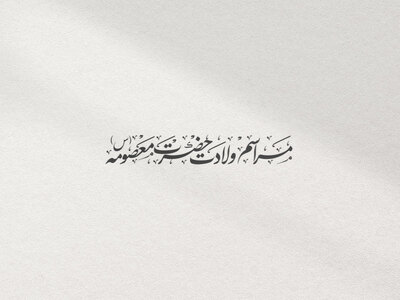 مراسم ولادت حضرت معصومه (س)